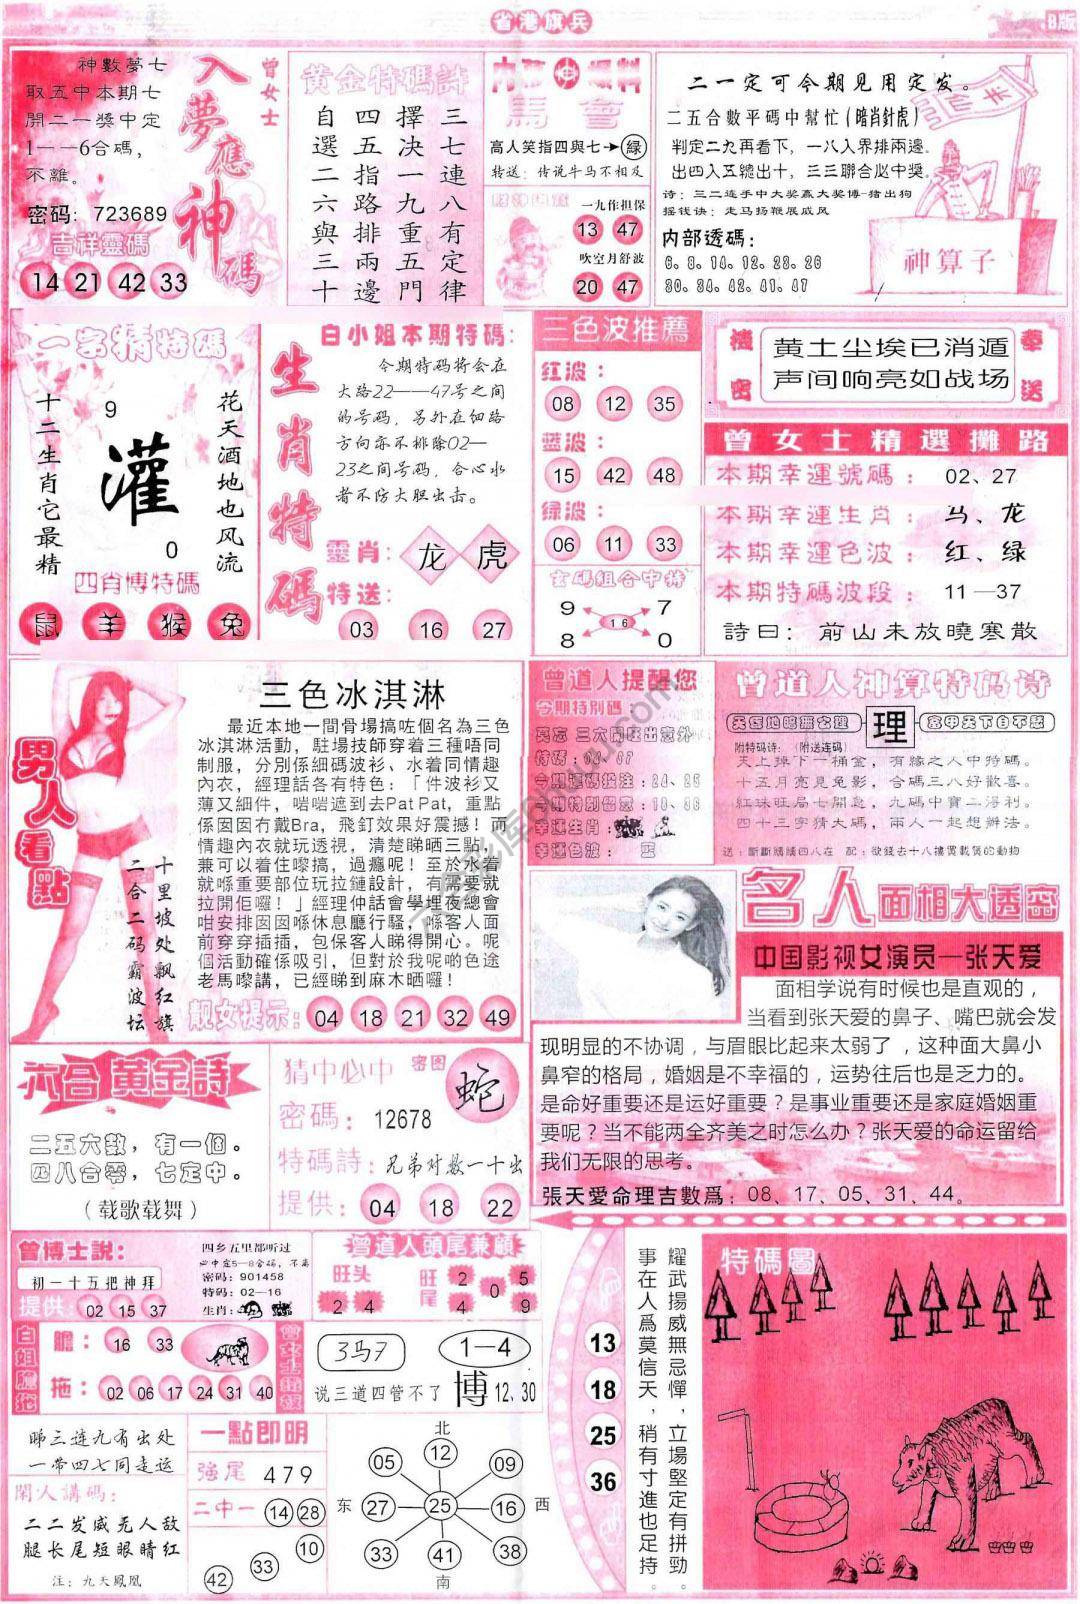 省港旗兵
B版
曾女士
入夢應神碼
神數夢七
取五中本期七
開二一獎中定
1——6合碼，
不離。
密码：723689
吉祥靈碼
14 21 42 33
黄金特碼詩
三七連八有定律
擇决一九重五門
四五指路排兩邊
自選二六與三十
馬會
高人笑指四與七→緑
转送：传说牛马不相及
一九作担保
13 47
吹空月舒波
20 47
二一定可今期见用定发。
二五合數平碼中幫忙（暗肖針虎）
判定二九再看下，一八入界排兩邊。
出四入五總出十，三三聯合必中獎。
诗：三二连手中大奖赢大奖博-猪出狗
摇钱诀：走马扬鞭展威风
内部透碼：
6.8.14.12.28.26
30.34.42.41.47
神算子
一字精特碼
花天酒地也风流
9
灌
0
十二生肖它最精
四肖博特碼
鼠 羊 猴 兔
生肖特碼
白小姐本期特碼：
今期特码将会在
大路22——47号之间
的号码，另外在细路
方向亦不排除02—
23之间号码，合心水
者不防大胆出击。
靈肖：龙 虎
特送：
03 16 27
三色波推薦
红波：
08 12 35
蓝波：
15 42 48
绿波：
06 11 33
玄碼组合中特
9 7
16
8 0
機密
奉送
黄土尘埃已消遁
声间响亮如战场
曾女士精選攤路
本期幸運號碼：02、27
本期幸運生肖：马、龙
本期幸運色波：红、绿
本期特碼波段：11—37
詩曰：前山未放曉寒散
男人看點
十里坡处飘红旗
二合二码霸波坛
三色冰淇淋
最近本地一間骨場搞咗個名為三色
冰淇淋活動，駐場技師穿着三種唔同
制服，分別係細碼波衫、水着同情趣
內衣，經理話各有特色：「件波衫又
薄又細件，啱啱遮到去Pat Pat，重點
係囡囡冇戴Bra，飛釘效果好震撼！而
情趣內衣就玩透視，清楚睇晒三點，
兼可以着住嚟搞，過癮呢！至於水着
就喺重要部位玩拉鏈設計，有需要就
拉開佢囉！」經理仲話會學埋夜總會
咁安排囡囡喺休息廳行騷，喺客人面
前穿穿插插，包保客人睇得開心。呢
個活動確係吸引，但對於我呢啲色途
老馬嚟講，已經睇到麻木晒囉！
靓女提示：04 18 21 32 49
曾道人提醒您
今期特别碼：
幸運生肖：
幸運色波：蓝
曾道人神算特码诗
理
附特码诗：（附送连码）
天上掉下一桶金，有緣之人中特碼。
十五月亮見兔影，合碼三八好歡喜。
四十三字猜大碼，兩人一起想辦法。
名人面相大透密
中国影视女演员—张天爱
面相学说有时候也是直观的，
当看到张天爱的鼻子、嘴巴就会发
现明显的不协调，与眉眼比起来太弱了，这种面大鼻小
鼻窄的格局，婚姻是不幸福的，运势往后也是乏力的。
是命好重要还是运好重要？是事业重要还是家庭婚姻重
要呢？当不能两全齐美之时怎么办？张天爱的命运留给
我们无限的思考。
張天愛命理吉數爲：08、17、05、31、44。
六合黄金詩
二五六數，有一個。
四八合零，七定中。
（载歌载舞）
猜中必中
密图
蛇
密碼：12678
特碼詩：兄弟对数一十出
提供：04 18 22
曾博士說：
初一十五把神拜
提供：02 15 37
四乡五里都听过
心中定5—8合码，不离
密码：901458
特码：02—16
生肖：
曾道人頭尾兼顧
旺头
2 4
旺尾
2 5
0
4 9
白姐膽拖
膽：16 33
拖：02 06 17 24 31 40
3马7
1—4
说三道四管不了
博12.30
睇三连九有出处
一带四七同走运
閑人講碼：
二二发威无人敌
腿长尾短眼睛红
注：九天鳳凰
一點即明
強尾 479
二中一 14 28
10
33
42
北
12
05 09
东 27 25 16 西
33 38
41
南
13
18
25
36
耀武揚威無忌憚，立場堅定有拼勁。
事在人爲莫信天，稍有寸進也足持。
特碼圖